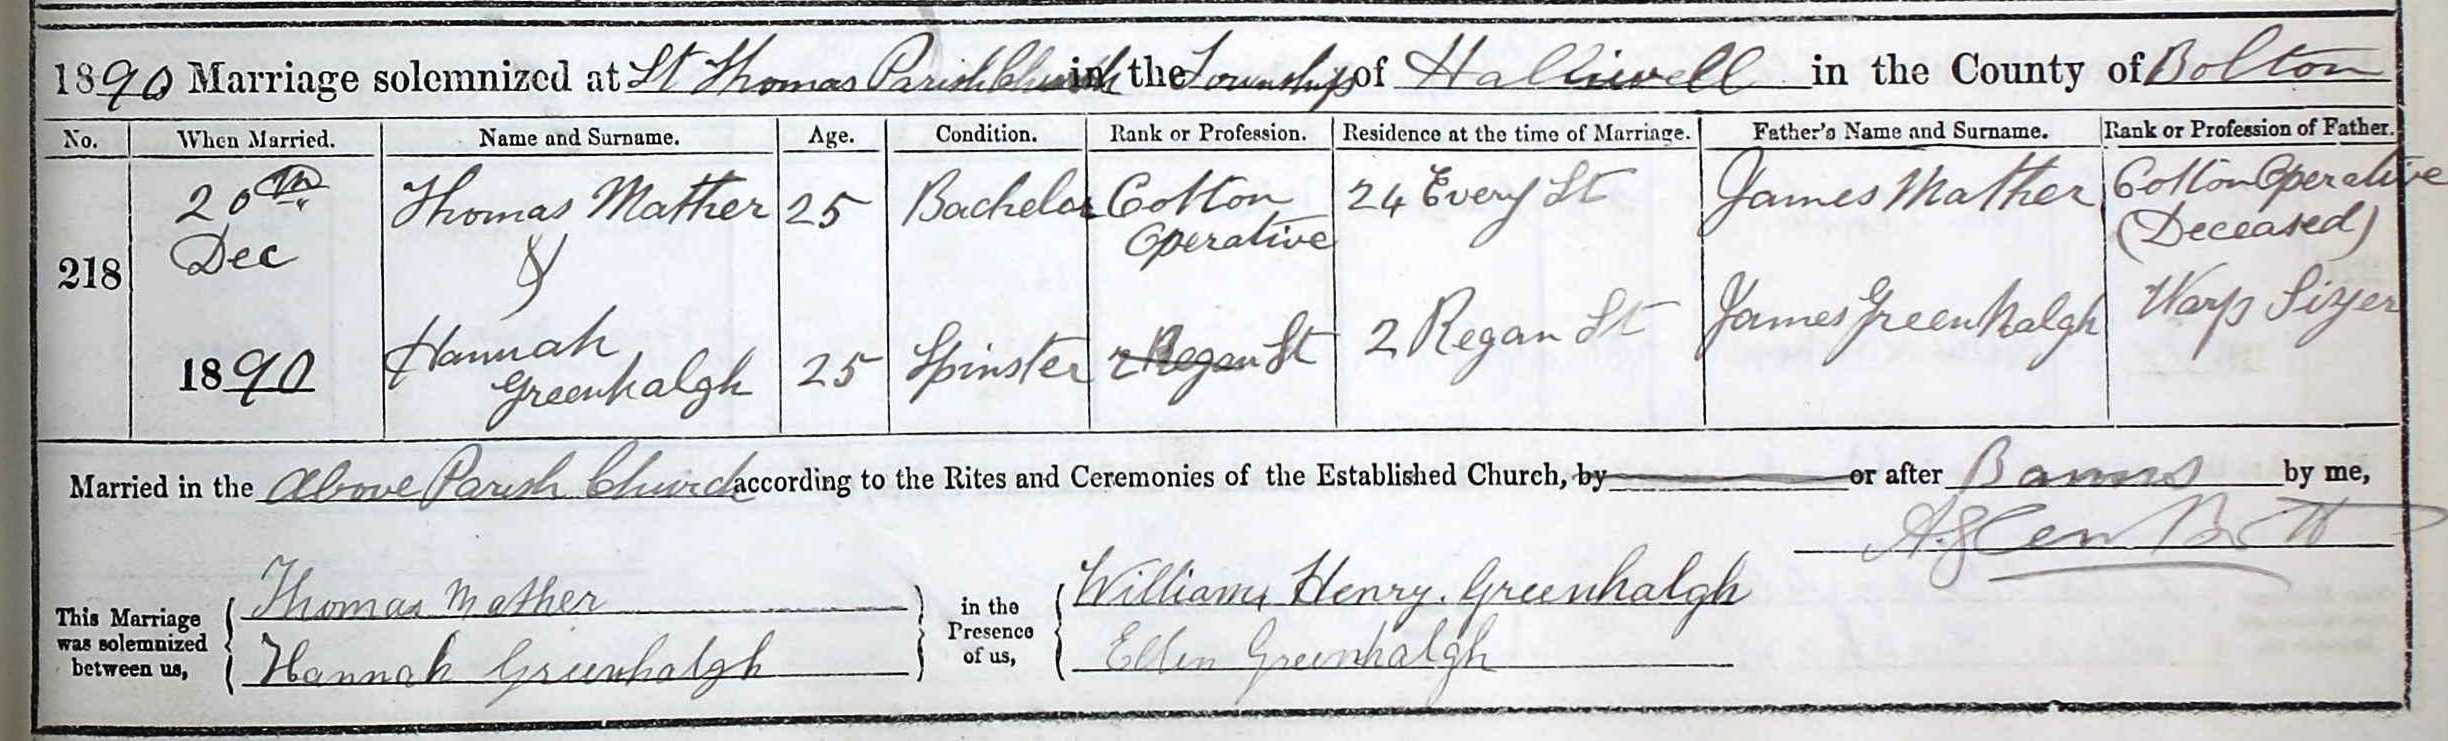 1890 Marriage solemnized at St Thomas Parish Church in the Township of Halliwell in the County of Bolton
No. When Married. Name and Surname. Age. Condition. Rank or Profession. Residence at the time of Marriage. Father's Name and Surname. Rank or Profession of Father.
218 20th Dec 1890
Thomas Mather 25 Bachelor Cotton Operative 24 Every St James Mather Cotton Operative (Deceased)
&
Hannah Greenhalgh 25 Spinster 2 Regan St 2 Regan St James Greenhalgh Warp Sizer
Married in the above Parish Church according to the Rites and Ceremonies of the Established Church, by or after Banns by me,
This Marriage was solemnized between us,
Thomas Mather
Hannah Greenhalgh
in the Presence of us,
William Henry. Greenhalgh
Ellen Greenhalgh